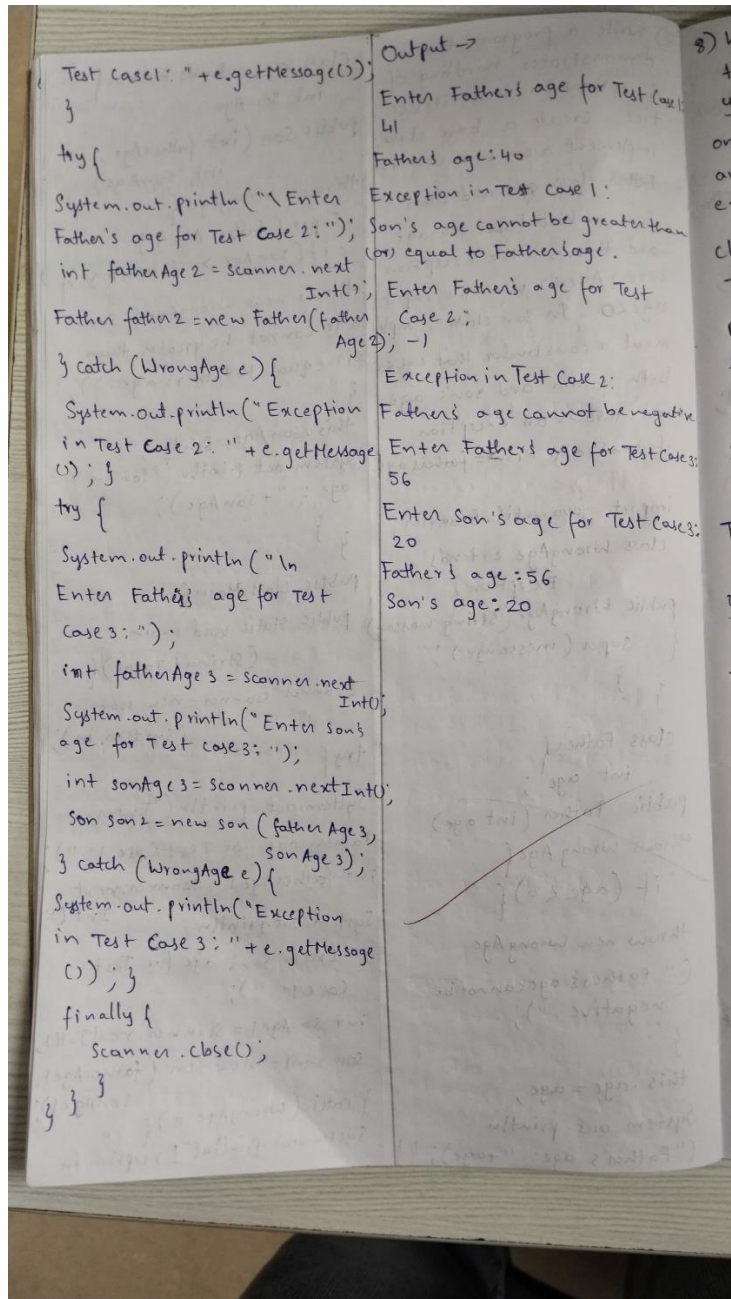 Test case1: "+e.getMessage());
}
try{
System.out.println("\ Enter
Father's age for Test Case 2:");
int fatherAge2 = scanner.next
Int();
Father father2 = new Father(father
Age2);
} catch (WrongAge e){
System.out.println("Exception
in Test Case 2: "+e.getMessage
()); }
try {
System.out.println("\n
Enter Father's age for Test
Case 3:");
int fatherAge3 = scanner.next
Int();
System.out.println("Enter son's
age for Test case3:");
int sonAge3 = scanner.nextInt();
Son son2 = new son (fatherAge3,
SonAge3);
} catch (WrongAge e){
System.out.println("Exception
in Test Case 3: "+e.getMessage
()); }
finally {
scanner.close();
}
}
}
Output →
Enter Father's age for Test Case1:
41
Father's age:40
Exception in Test Case 1:
Son's age cannot be greater than
(or) equal to Father's age.
Enter Father's age for Test
Case 2:
-1
Exception in Test Case 2:
Father's age cannot be negative
Enter Father's age for Test Case3:
56
Enter Son's age for Test Case3:
20
Father's age:56
Son's age:20
8)